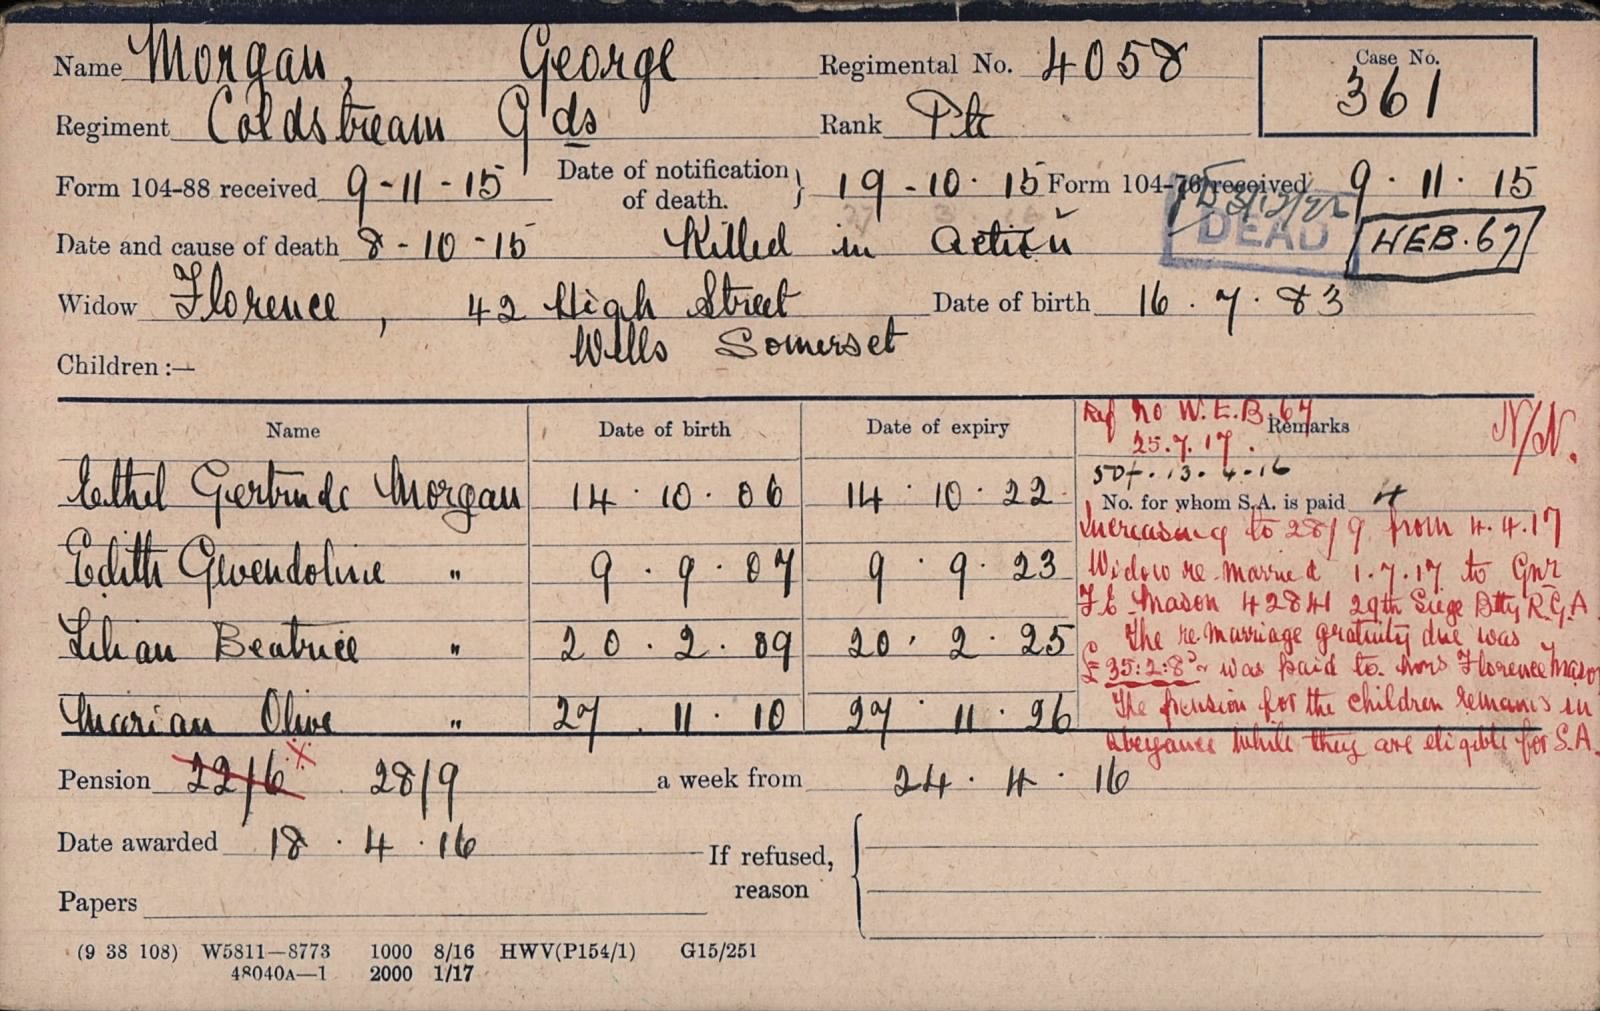 Name Morgan, George Regimental No. 4058 Case No. 361
Regiment Coldstream Gds Rank Pte
Form 104-88 received 9-11-15 Date of notification of death. } 19-10.15 Form 104-76 received 9.11.15
DEAD
Date and cause of death 8-10-15 Killed in Action WEB.67
Widow Florence, 42 High Street Date of birth 16.7.83
Wells Somerset
Children :—
Name Date of birth Date of expiry Remarks
Ref no W.E.B. 67 N/N.
25.7.17.
13.4.16
Ethel Gertrude Morgan 14.10.06 14.10.22
No. for whom S.A. is paid 4
Increasing to 28/9 from 4.4.17
Edith Gwendoline " 9.9.07 9.9.23
Widow re-married 1.7.17 to Gnr
F E Mason 42841 29th Siege Btty R.G.A
Lilian Beatrice " 20.2.09 20.2.25
The re-marriage gratuity due was
£35:2:8 was paid to Mrs Florence Mason
Marian Olive " 27.11.10 27.11.26
The pension for the children remains in
abeyance while they are eligible for S.A.
Pension 22/6 x 28/9 a week from 24.4.16
Date awarded 18.4.16 If refused, reason
Papers
(9 38 108) W5811—8773 1000 8/16 HWV(P154/1) G15/251
48040A—1 2000 1/17